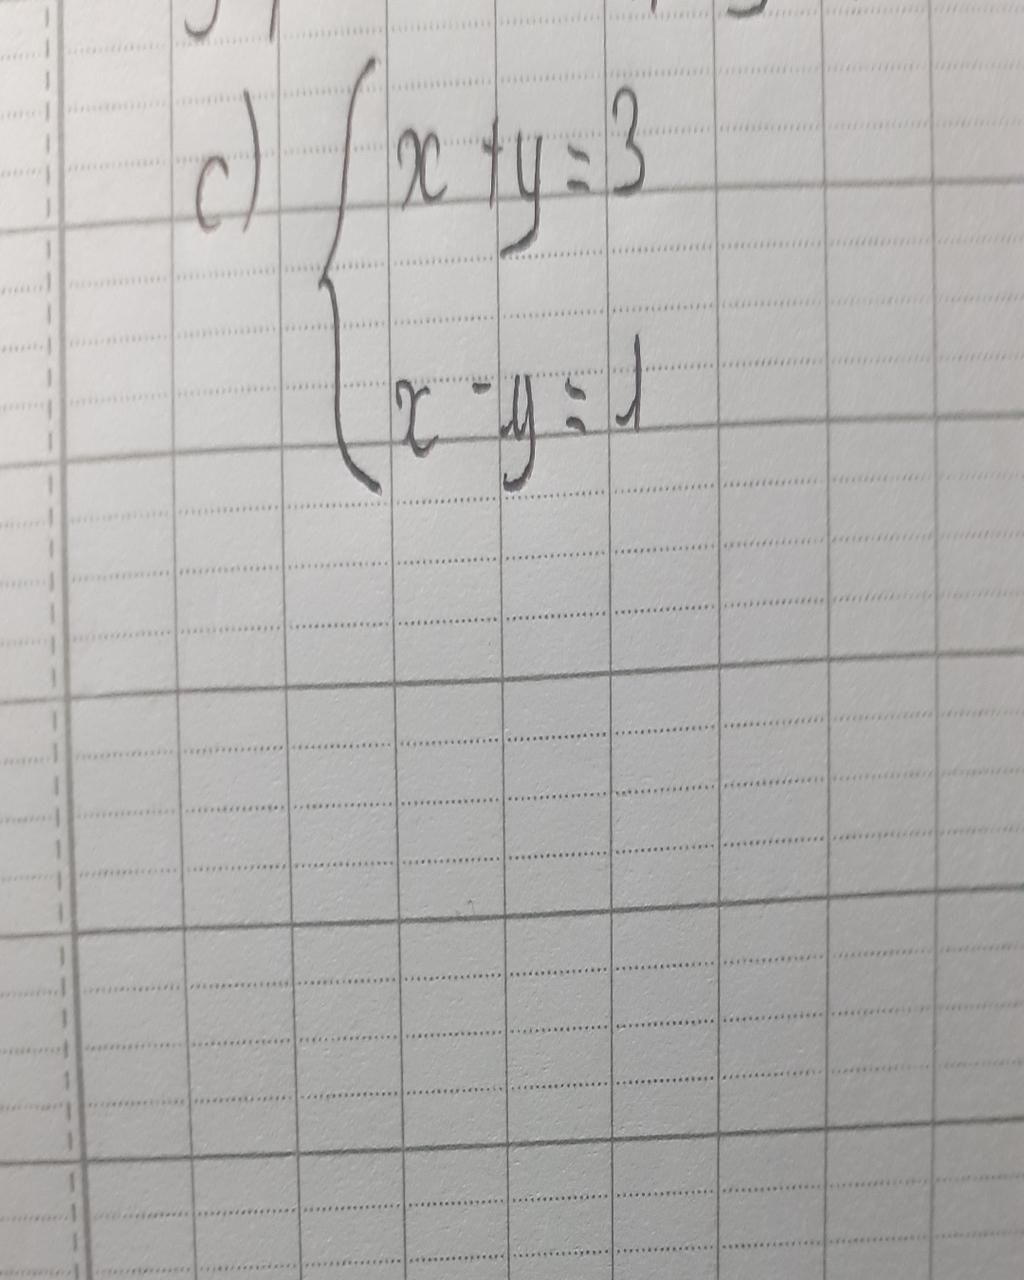 c) { x + y = 3
x - y = 1